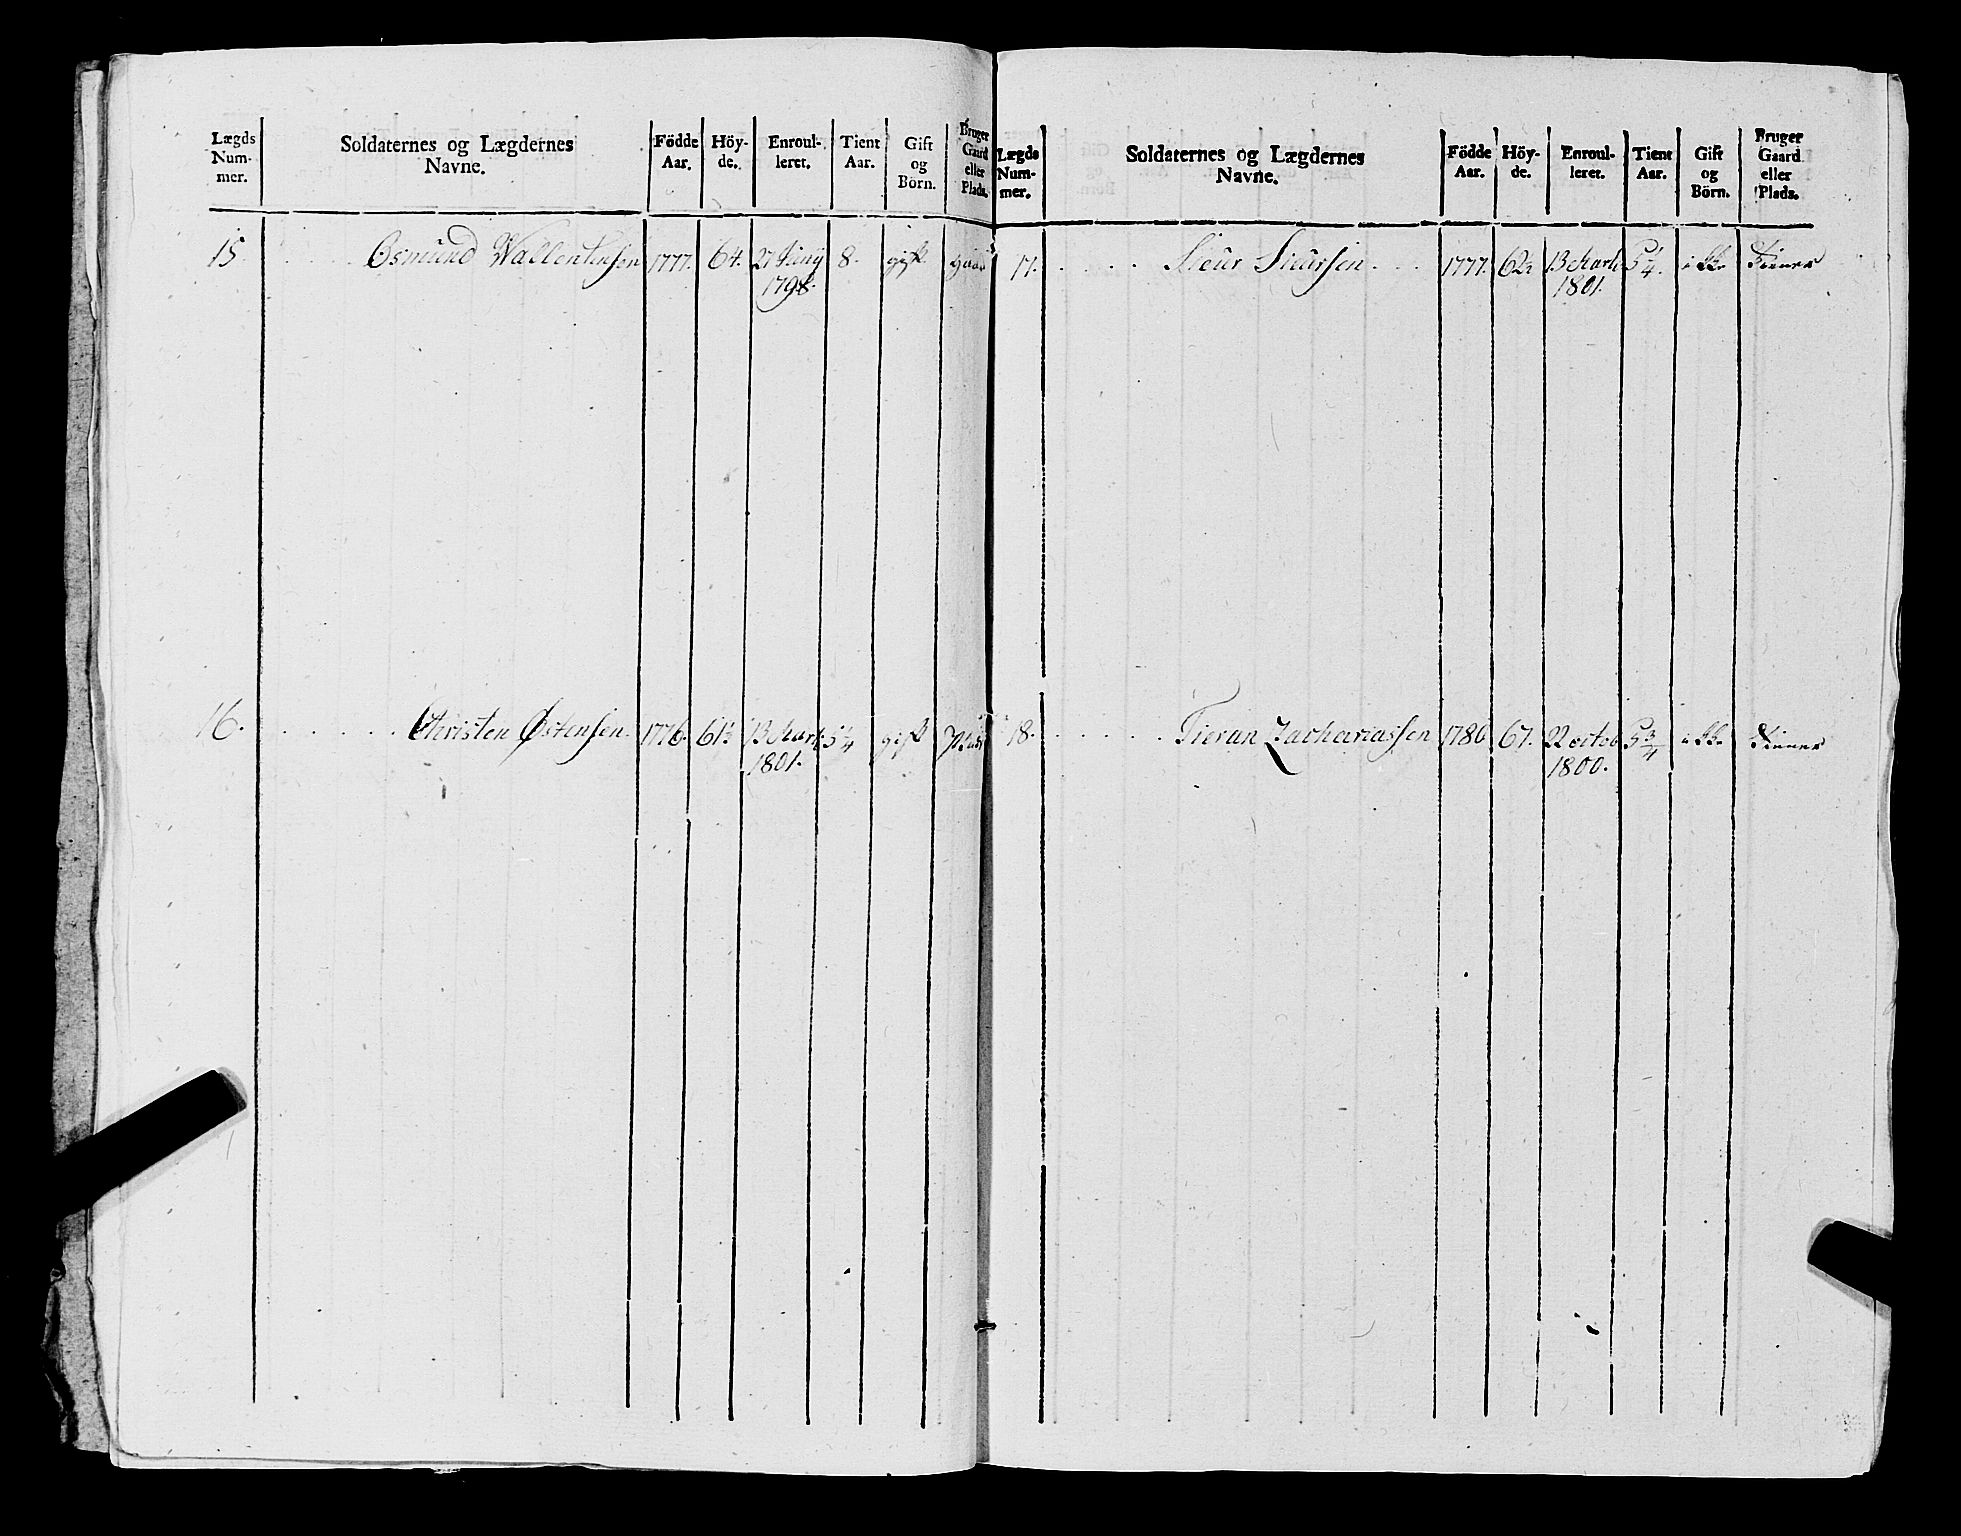 Lægds Num- mer. Soldaternes og Lægdernes Navne. Födde Aar. Höy- de. Enroul- leret. Tient Aar. Gift og Börn. Bruger Gaard eller Plads.
15. Osmund Wallentinsen 1777. 64. 27 Juny 8. gift gaard
1798.
16. Christen Østensen. 1776. 61½ 13 Mart. 5¼ gift Plads
1801.
Lægds Num- mer. Soldaternes og Lægdernes Navne. Födde Aar. Höy- de. Enroul- leret. Tient Aar. Gift og Börn. Bruger Gaard eller Plads.
17. Sieur Siursen 1777. 62½ 13 Marti 5¼. ikke Tiener
1801.
18. Tieran Zachariassen 1780 67. 22 octob 5¾ ikke Tiener
1800.